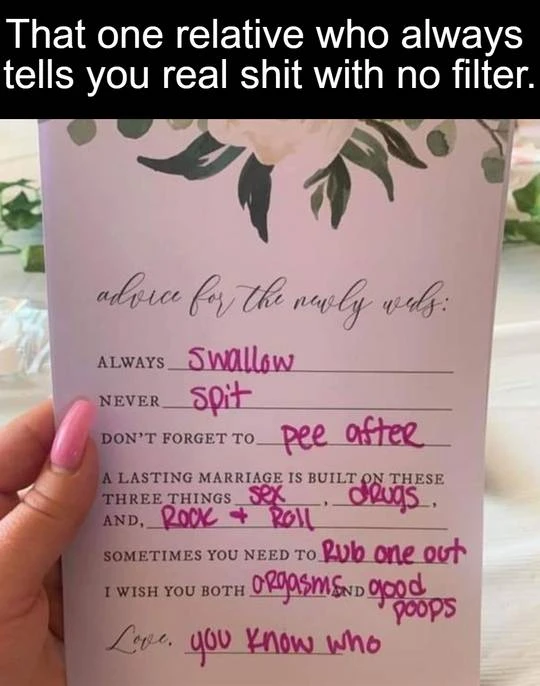 That one relative who always
tells you real shit with no filter.
advice for the newly weds:
ALWAYS swallow
NEVER spit
DON'T FORGET TO pee after
A LASTING MARRIAGE IS BUILT ON THESE
THREE THINGS sex, drugs,
AND, Rock + Roll
SOMETIMES YOU NEED TO Rub one out
I WISH YOU BOTH orgasms AND good
poops
Love, you know who